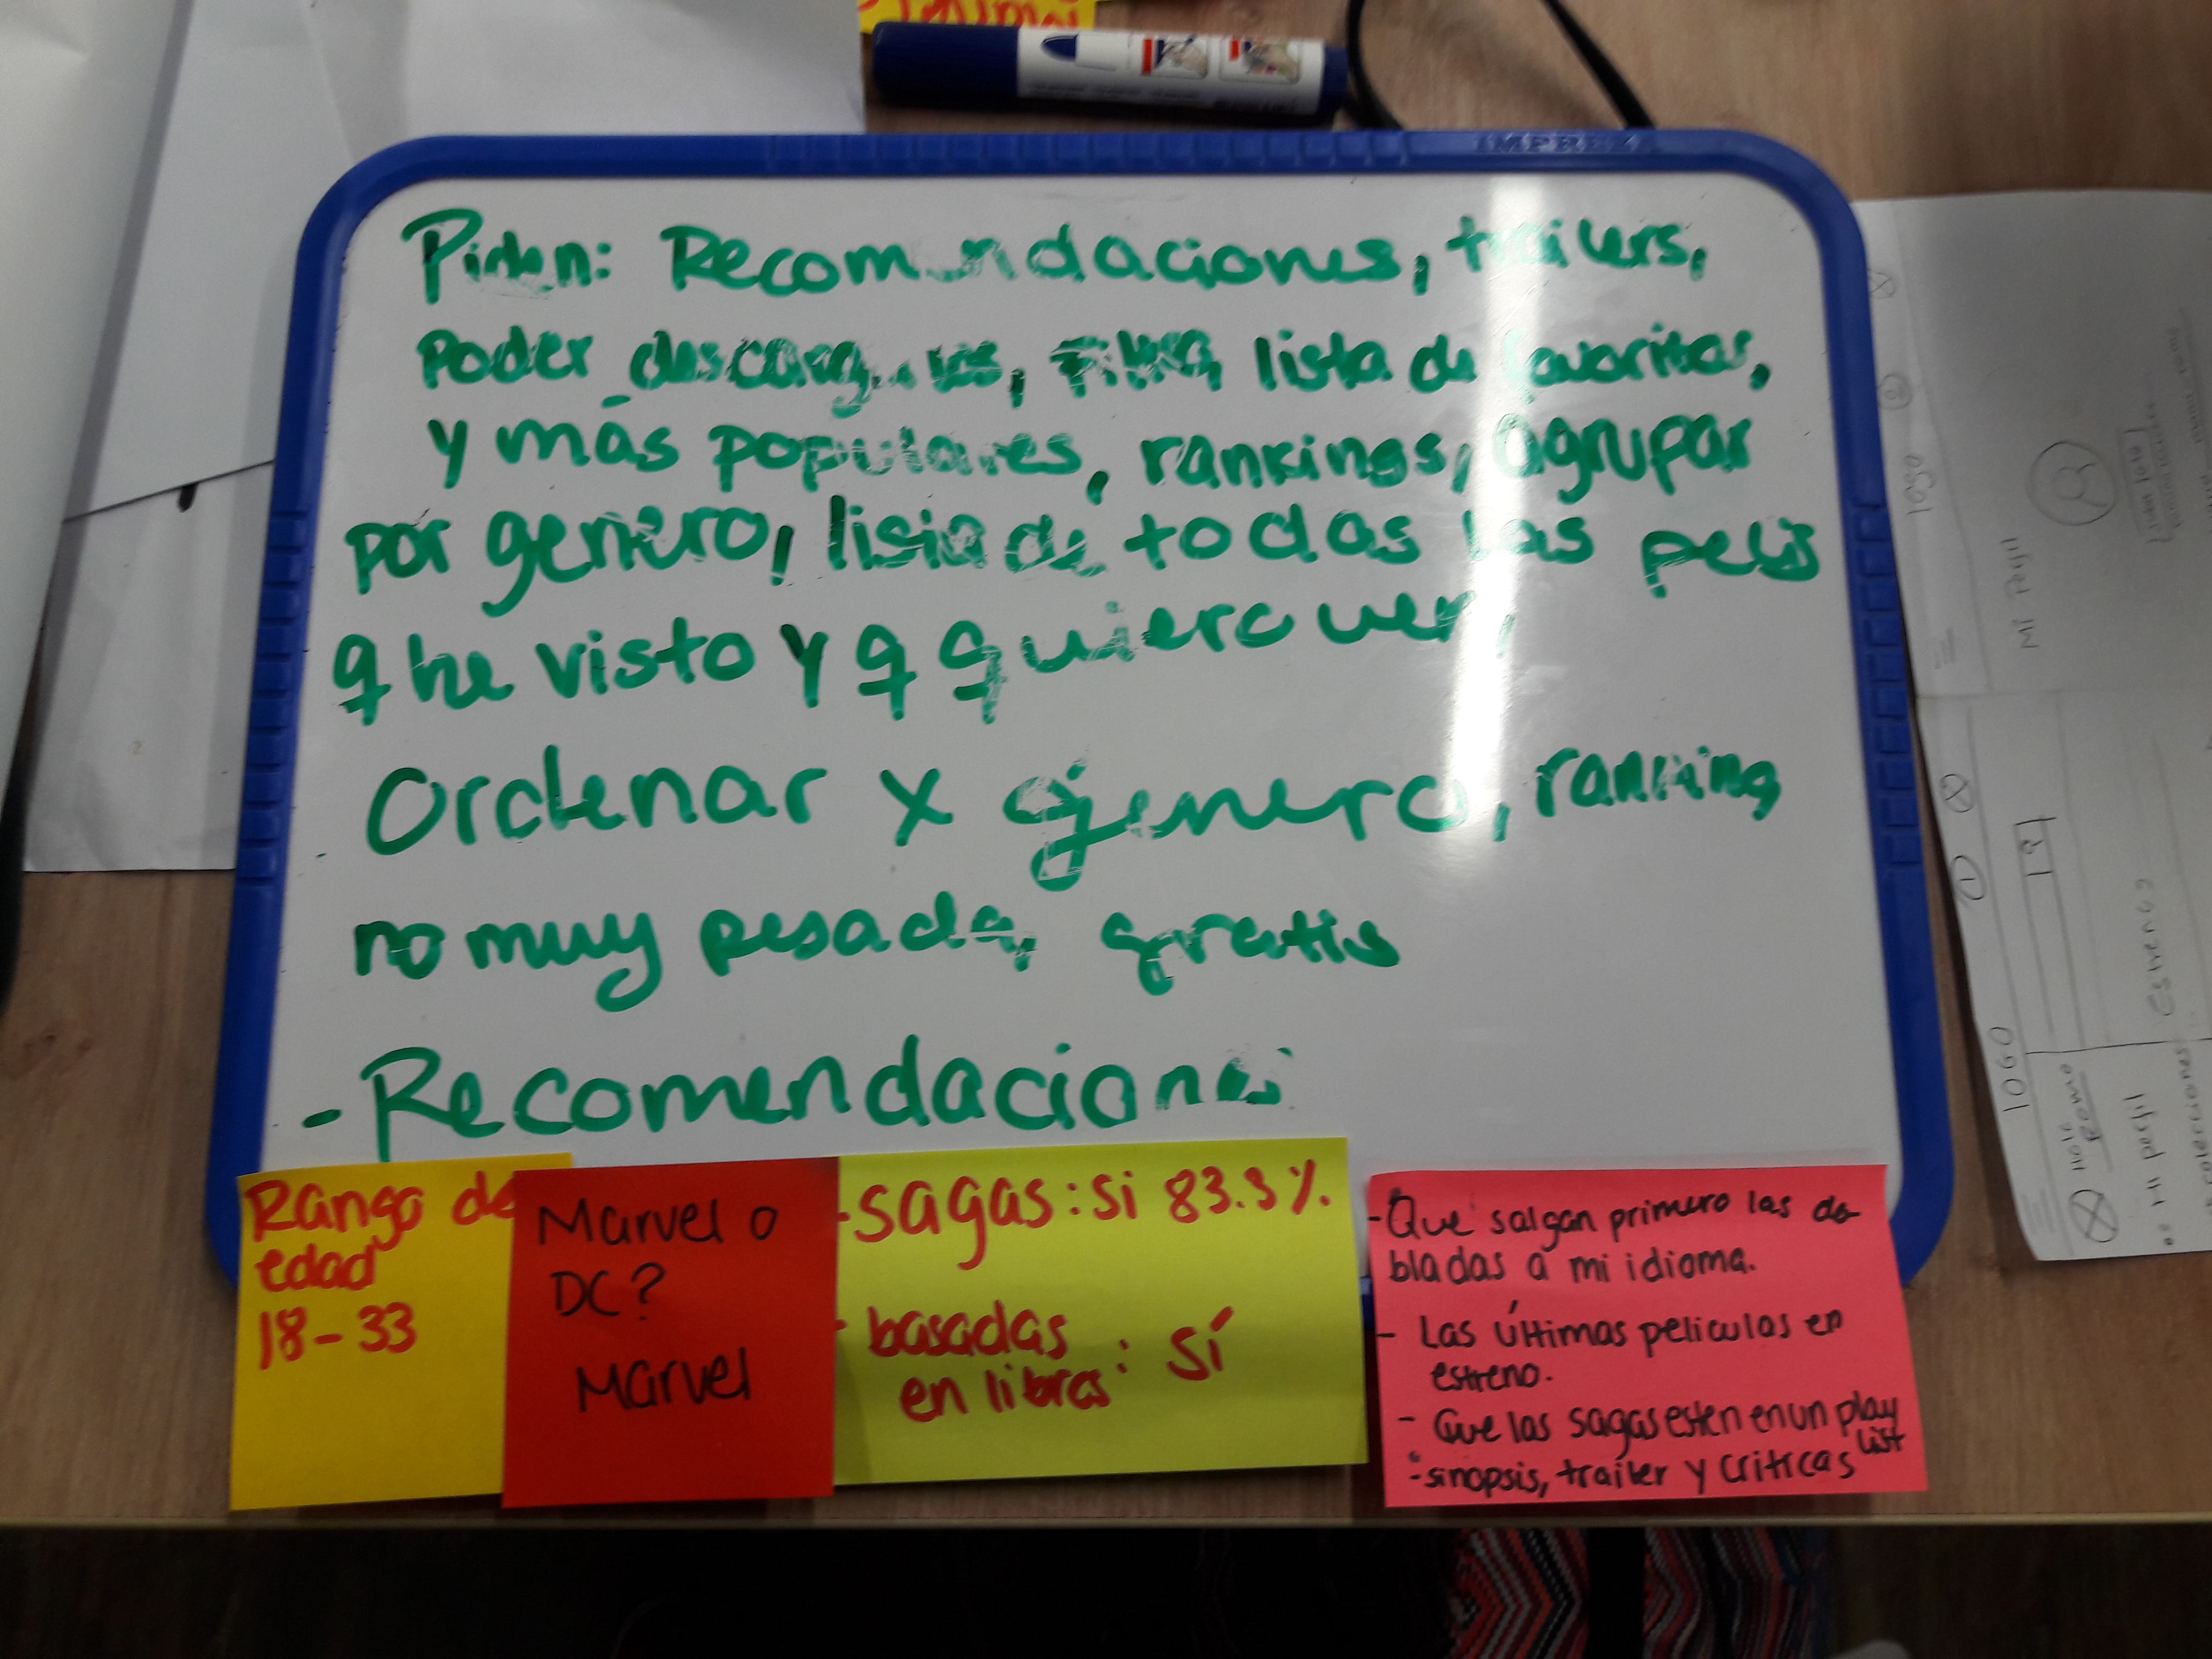 IMPREZ
Piden: Recomendaciones, trailers,
Poder lista de favoritas,
y más populares, rankings, agrupar
por genero, lista de todas las pelis
q he visto y q quiero ver,
Ordenar x genero, ranking
no muy pesada, gratis
- Recomendaciones
Rango de
edad
18-33
Marvel o
DC?
Marvel
- sagas: si 83.3%.
- basadas
en libros: sí
- Que salgan primero las do
bladas a mi idioma.
- Las últimas peliculas en
estreno.
- Que las sagas esten en un play
list
- sinopsis, trailer y criticas
logo
Mi perfil
LOGO
Hola
Romo
Mi perfil
Estrenos